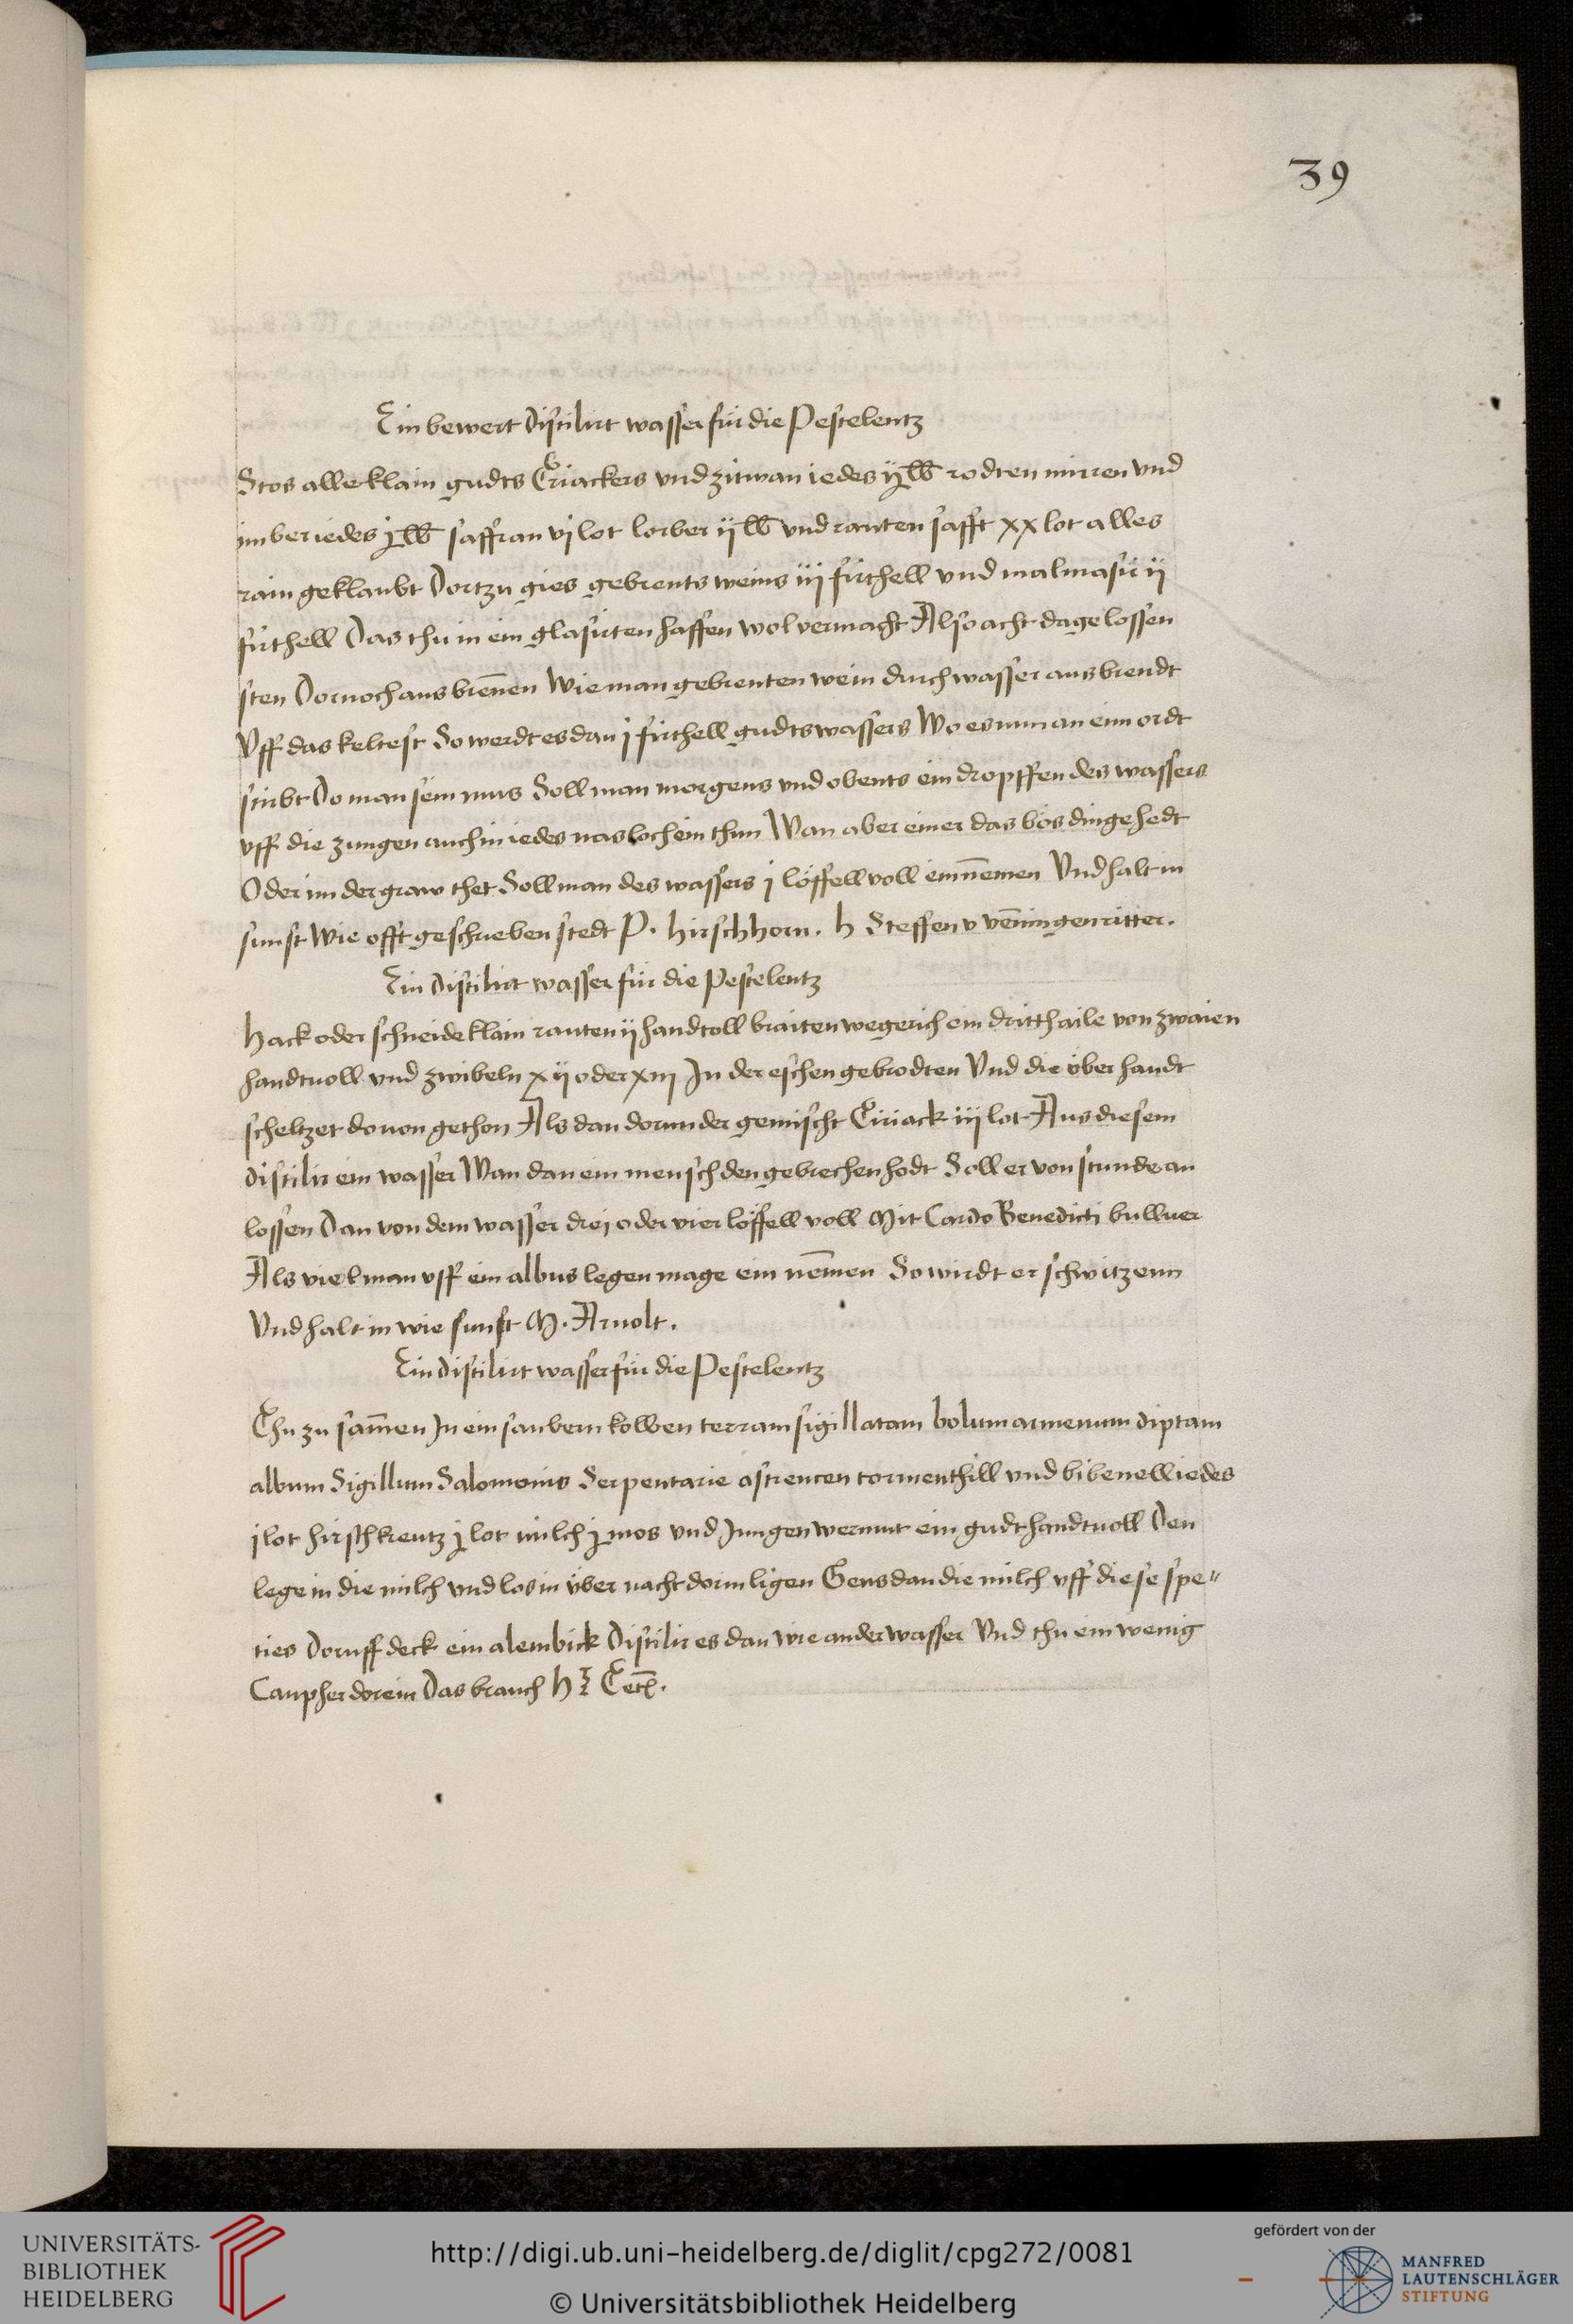 39
Ein bewert distilirt wasser für die Pestelentz
Stos alle klain gudts Tiriackers vnd zitwan iedes ij lb rodten mirren vnd
imber iedes j lb saffran vj lot lorber ij lb vnd rauten safft xx lot alles
rain geklaubt Dortzu gies gebrents weins iij firthell vnd malmasir ij
firthell Das thu in ein glasurten haffen wol vermacht Also acht dage lossen
sten Dornoch aus brēnen Wie man gebrenten wein durch wasser aus brendt
Vff das keltest So werdt es dan j firthell gudts wassers Wo es nun an eim ordt
stirbt Do man sein mus Soll man morgens vnd obents ein dropffen des wassers
vff die zungen auch in iedes nasloch ein thun Wan aber einer das bös ding hedt
Oder im der graw thet Soll man des wassers j löffell voll einnēmen Vnd halt in
sunst Wie offt geschrieben stedt P. Hirschhorn. H Steffen v vēningen ritter.
Ein distilirt wasser für die Pestelentz
Hack oder schneide klain rauten ij handtvoll braiten wegerich ein dritthaile von zwaien
handtuoll vnd zwibeln xij oder xiij In der eschen gebrodten Vnd die über handt
scheltzet douon gethon Als dan dorunder gemischt Tiriack iij lot Aus diesem
distilir ein wasser Wan dan ein mensch den gebrechen hodt Soll er von stunde an
lossen Dan von dem wasser drej oder vier löffell voll Mit Cardo Benedicti bulluer
Als viel man vff ein albus legen mage ein nēmen So wirdt er schwitzenn
Vnd halt in wie sunst M. Arnolt.
Ein distilirt wasser für die Pestelentz
Thu zu samēn In ein saubern kolben terram sigillatam bolum armenum diptam
album Sigillum Salomonis Serpentarie astrencen tormenthill vnd bibenell iedes
j lot hirschkreutz j lot milch j mos vnd Jungen wermut ein gudt handtuoll Den
lege in die milch vnd los in über nacht dorin ligen Geus dan die milch vff diese spe"
ties Doruff deck ein alembick Distilir es dan wie ander wasser Vnd thu ein wenig
Campher dorein Das brauch H
UNIVERSITÄTS-
BIBLIOTHEK
HEIDELBERG
http://digi.ub.uni-heidelberg.de/diglit/cpg272/0081
© Universitätsbibliothek Heidelberg
gefördert von der
MANFRED
LAUTENSCHLÄGER
STIFTUNG